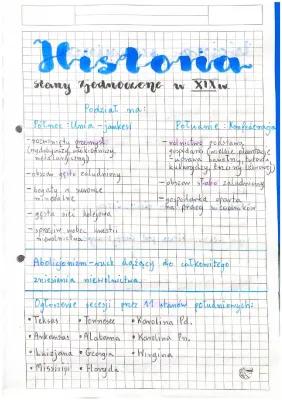 Historia
stany Zjednoczone w XIX w.
Podział na:
Północ: Unia - jankesi
- rozwinięty przemysł
metalurgiczny)
- obszar gęsto zaludniony
- bogaty w surowce
mineralne
- gęsta sieć kolejowa
- sprzeciw wobec kwestii
niewolnictwa
Południe: Konfederacja
- rolnictwo podstawą
gospodarki (wielkie plantacje
- uprawa bawełny, tytoniu,
kukurydzy, trzciny cukrowej)
- obszar słabo zaludniony
- gospodarka oparta
na pracy niewolników
Abolicjonizm - ruch dążący do całkowitego
zniesienia niewolnictwa.
Ogłoszenie secesji przez 11 stanów południowych:
• Teksas • Tennesee • Karolina Pd.
• Arkansas • Alabama • Karolina Pn.
• Luizjana • Georgia • Wirginia
• Missisipi • Floryda